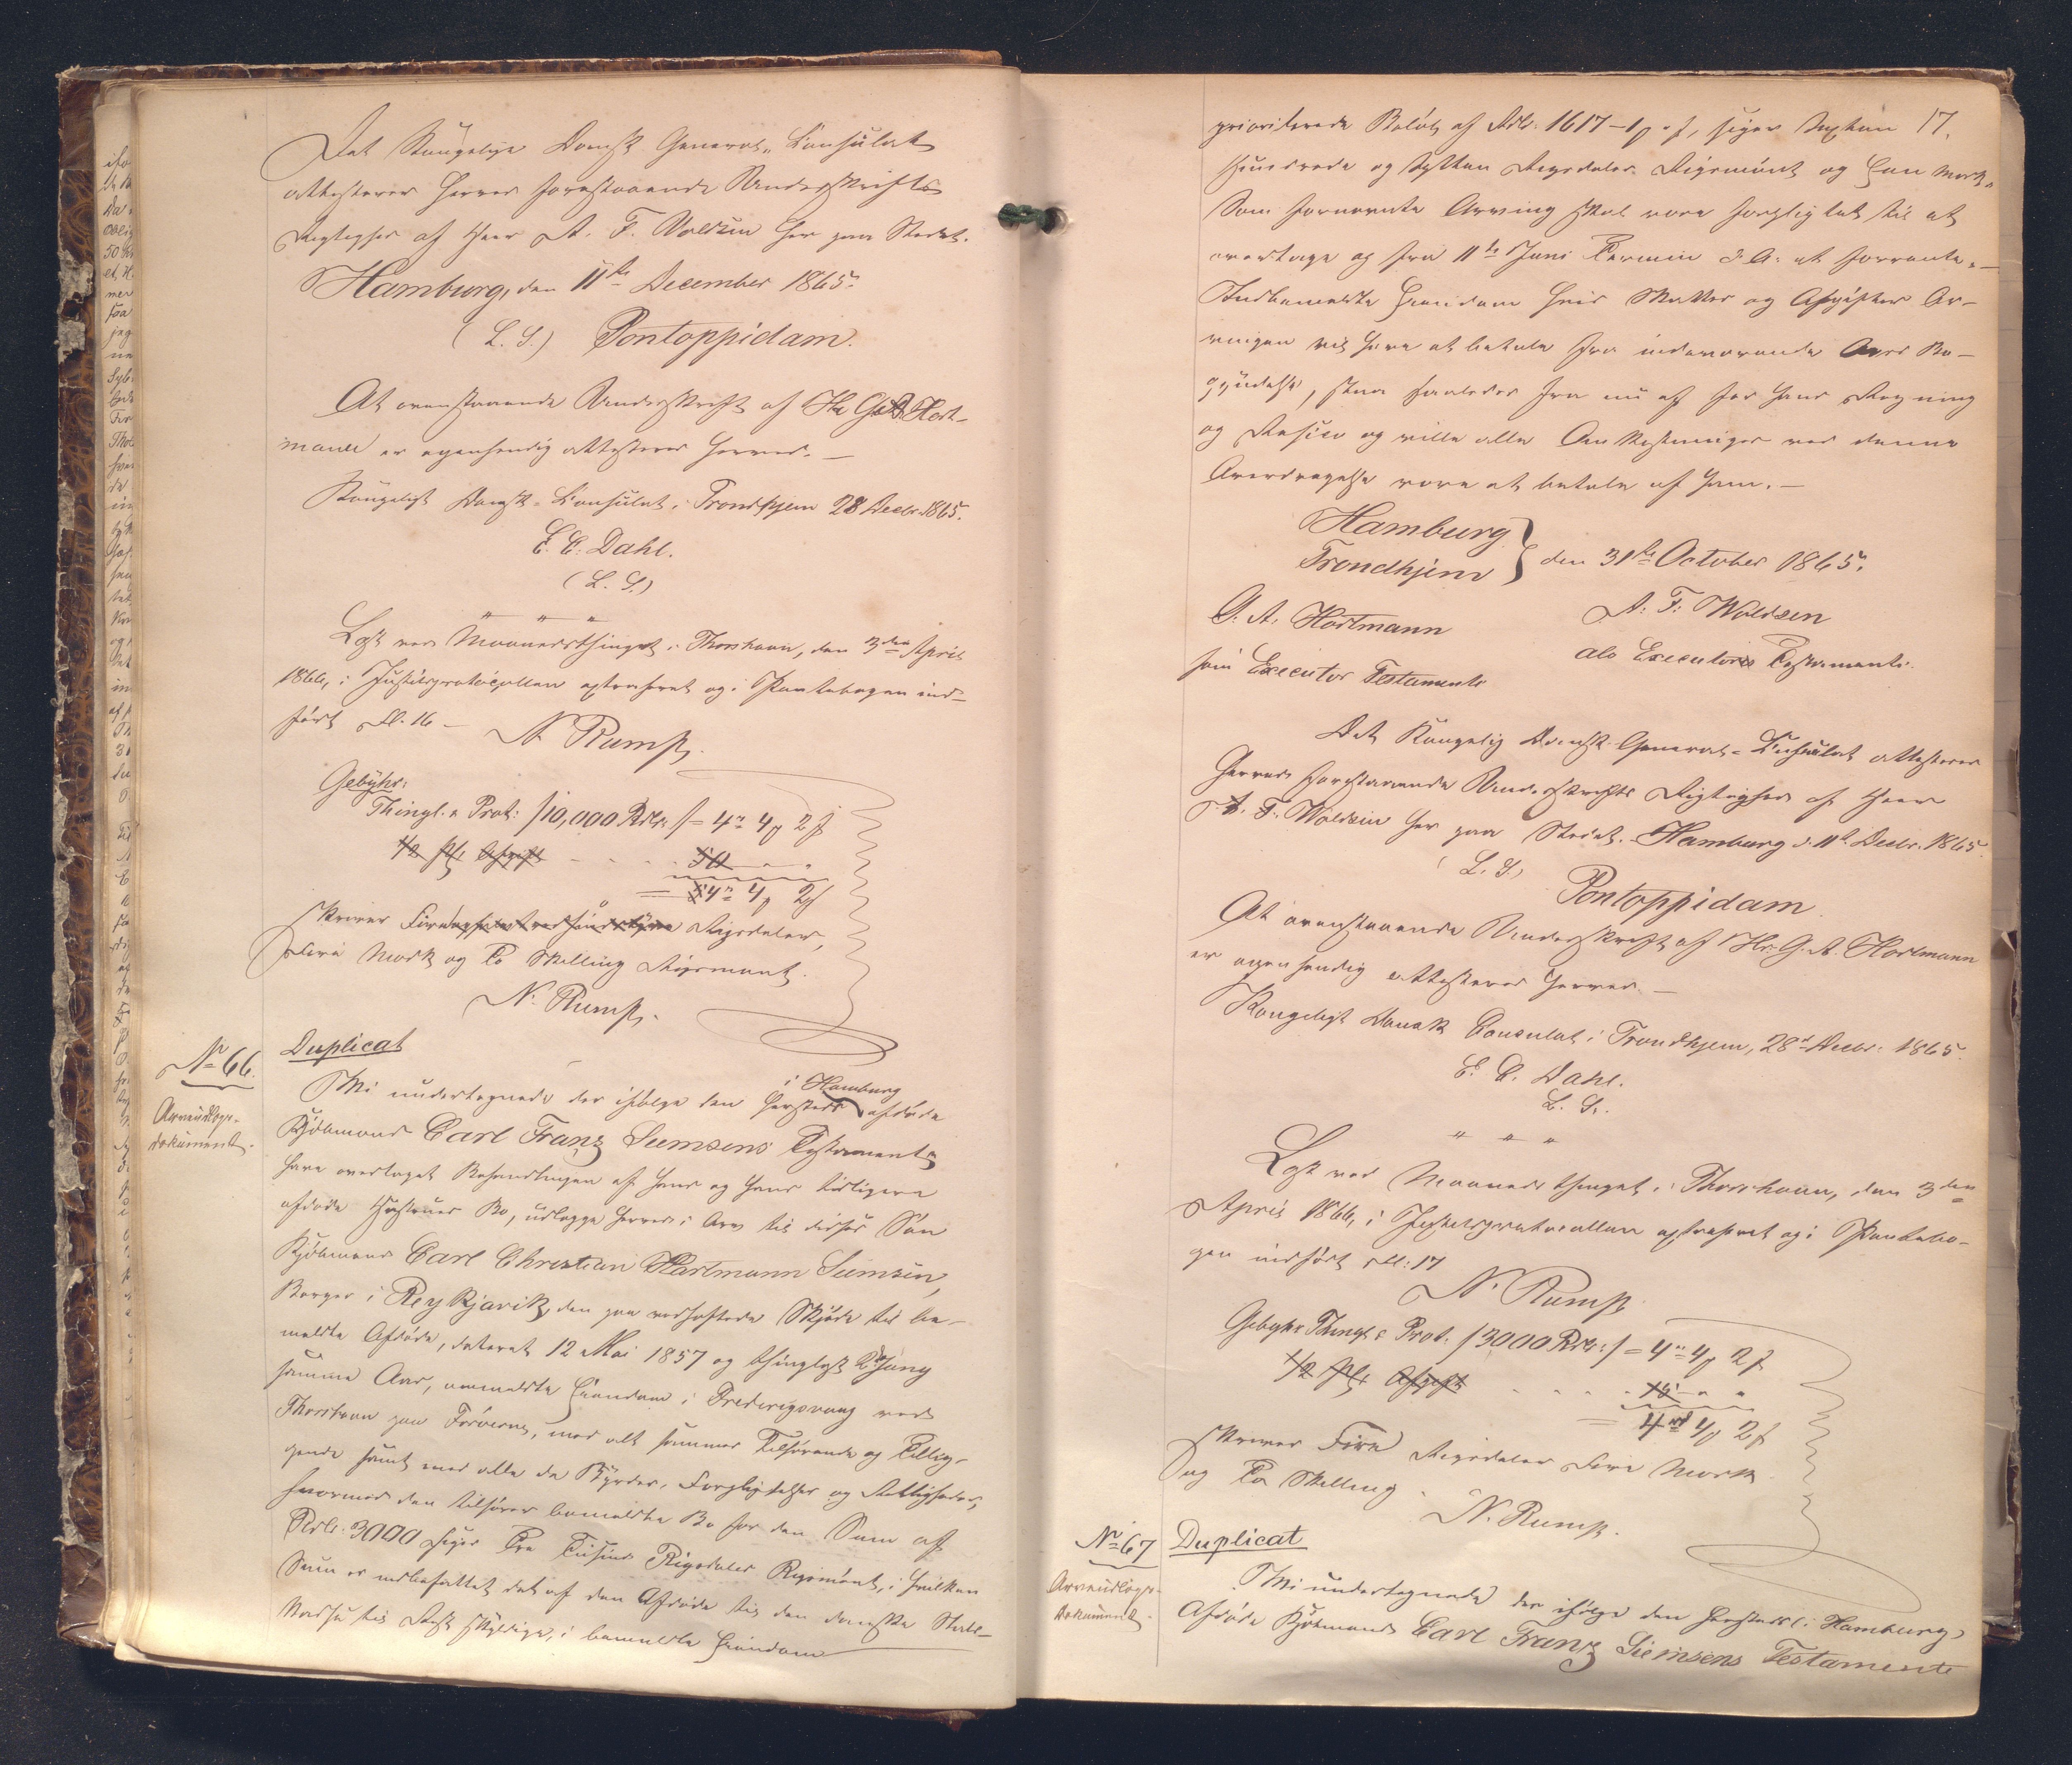 Det Kongelige Dansk General-Consulat
attesterer herved forestaaende Underskrifts
Rigtighed af Herr A. F. Woldsen her paa Stedet.
Hamburg, den 11te December 1865.
(L. S.) Pontoppidam.
At ovenstaaende Underskrift af Hr G. A. Hart-
mann er egenhændig attesteres herved. —
Kongeligt Dansk Consulat i Trondhjem 28 Decbr. 1865.
E. C. Dahl.
(L. S.)
" — " — "
Læst ved Maanedsthinget i Thorshavn, den 3den April
1866, i Justitsprotocollen extraheret og i Pantebogen ind-
ført Fol. 16 —
N. Rump.
Gebyhr:
Thingl. & Prot: /10,000 Rdlr:/ = 4rd 4 ℳ 2 ß
1/2 pCt. Afgift - - - - 50 " "
= 54rd 4 ℳ 2 ß
skriver Fire Rigsdaler,
Fire Mark og To Skilling Rigsmønt.
N. Rump.
No 66.
Arveudlægs-
dokument.
Duplicat
i Hamburg
Vi undertegnede der ifølge den hersteds afdøde
Kjøbmand Carl Franz Siemsens Testament
have overtaget Behandlingen af hans og hans tidligere
afdøde Hustrues Bo, udlægge herved i Arv til disses Søn
Kjøbmand Carl Christian Hartmann Siemsen,
Borger i Reykjavik, den paa vedhæftede Skjøde til be-
meldte Afdøde, dateret 12 Mai 1857 og thinglyst
samme Aar, ommeldte Eiendom i Frederigsvaag ved
Thorshavn paa Færøerne, med alt sammes Tilhørende og Tillig-
gende samt med alle de Byrder, Forpligtelser og Rettigheder,
hvormed den tilhører bemeldte Bo for den Sum af
Rdlr. 3000 siger Tre Tusinde Rigsdaler Rigsmønt, i hvilken
Sum er indbefattet det af den Afdøde til den danske Stats-
kasse til Rest skyldige, i bemeldte Eiendom
17.
prioriterede Beløb af Rdlr. 1617 - 1 ℳ - ß, siger Sexten
Hundrede og Sytten Rigsdaler Rigsmønt og Een Mark.
Som fornævnte Arving skal være forpligtet til at
overtage og fra 11te Juni Termin d. A. at forrente. —
Indbemeldte Eiendom hvis Skatter og Afgifter Ar-
vingen vil have at betale fra indeværende Aars Be-
gyndelse, staar saaledes fra nu af for hans Regning
og Risico og ville alle Omkostninger ved denne
Overdragelse være at betale af ham. —
Hamburg
Trondhjem } den 31te October 1865.
G. A. Hartmann
som Executor Testamenti
A. F. Woldsen
als Executor Testamenti.
Det Kongelig Dansk General-Consulat attesterer
herved forestaaende Underskrifts Rigtighed af Herr
A. F. Woldsen her paa Stedet. Hamburg d. 11te Decbr. 1865.
(L. S.)
Pontoppidam.
At ovenstaaende Underskrift af Hr. G. A. Hartmann
er egenhændig attesteres herved. —
Kongeligt Dansk Consulat i Trondhjem, 28d Decbr. 1865.
E. C. Dahl.
L. S.
" — " — "
Læst ved Maanedsthinget i Thorshavn, den 3den
April 1866, i Justitsprotocollen extraheret og i Pantebo-
gen indført Fol: 17
N. Rump
Gebyhr Thingl. & Prot. /3000 Rdlr:/ = 4rd 4 ℳ 2 ß
1/2 pCt. Afgift - - - 15 " "
= 4rd 4 ℳ 2 ß
skriver Fire Rigsdaler Fire Mark
og To Skilling.
N. Rump.
No 67
Arveudlægs-
dokument.
Duplicat
Vi undertegnede der ifølge den hersteds (i Hamburg)
Afdøde Kjøbmand Carl Franz Siemsens Testamente